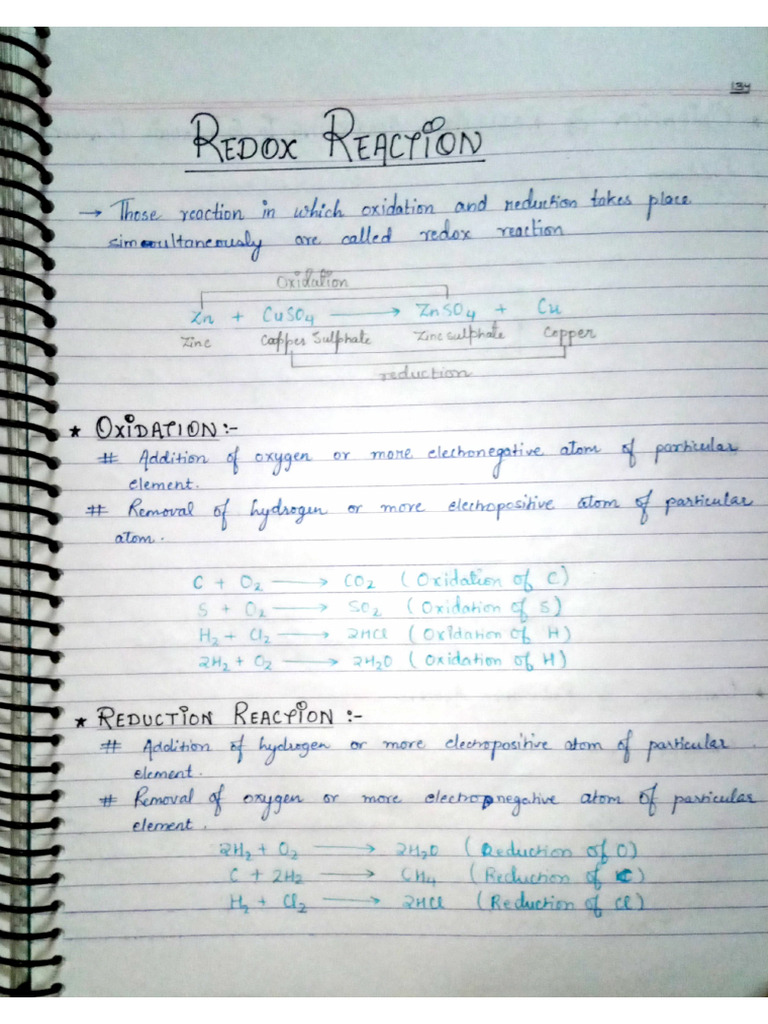 134
REDOX REACTION
→ Those reaction in which oxidation and reduction takes place
simoultaneously are called redox reaction
Oxidation
Zn + CuSO4 → ZnSO4 + Cu
Zinc Copper Sulphate Zinc sulphate Copper
reduction
* OXIDATION:-
# Addition of oxygen or more electronegative atom of particular
element.
# Removal of hydrogen or more electropositive atom of particular
atom.
C + O2 → CO2 (Oxidation of C)
S + O2 → SO2 (Oxidation of S)
H2 + Cl2 → 2HCl (Oxidation of H)
2H2 + O2 → 2H2O (Oxidation of H)
* REDUCTION REACTION :-
# Addition of hydrogen or more electropositive atom of particular
element.
# Removal of oxygen or more electronegative atom of particular
element.
2H2 + O2 → 2H2O (Reduction of O)
C + 2H2 → CH4 (Reduction of C)
H2 + Cl2 → 2HCl (Reduction of Cl)